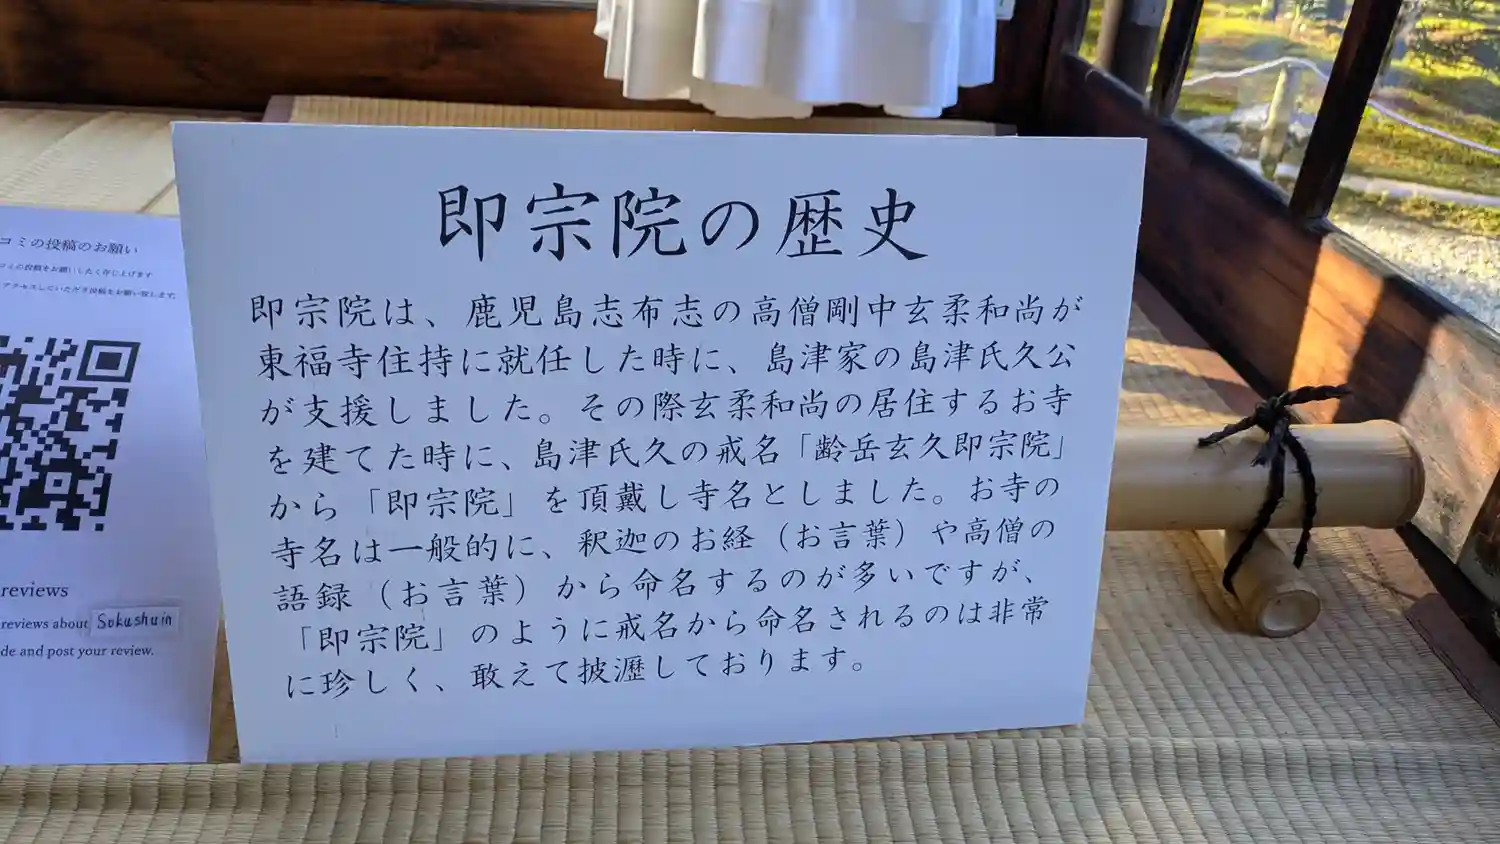 即宗院の歴史
即宗院は、鹿児島志布志の高僧剛中玄柔和尚が
東福寺住持に就任した時に、島津家の島津氏久公
が支援しました。その際玄柔和尚の居住するお寺
を建てた時に、島津氏久の戒名「齢岳玄久即宗院」
から「即宗院」を頂戴し寺名としました。お寺の
寺名は一般的に、釈迦のお経（お言葉）や高僧の
語録（お言葉）から命名するのが多いですが、
「即宗院」のように戒名から命名されるのは非常
に珍しく、敢えて披瀝しております。
コミの投稿のお願い
コミの投稿をお願いしたく存じ上げます
アクセスしていただき投稿をお願い致します。
reviews
reviews about Sokushuin
de and post your review.